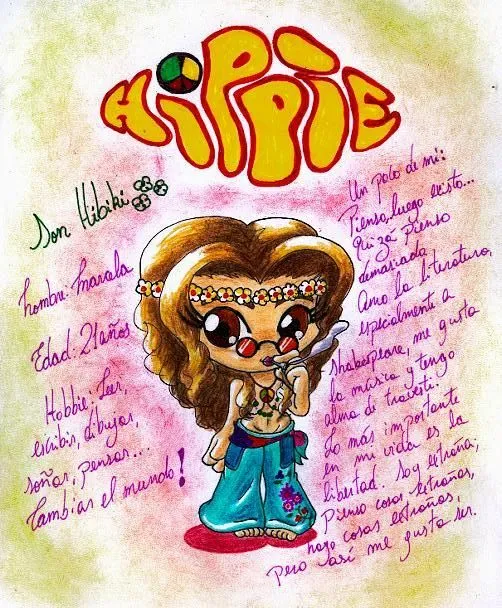 HIPPIE
Son Hibiki
Nombre: Marala
Edad: 21 años
Hobbie: Leer,
escribir, dibujar,
soñar, pensar...
Cambiar el mundo!
Un poco de mi:
Pienso, luego existo...
Quizá pienso
demasiado
Amo la literatura,
especialmente a
Shakespeare, me gusta
la música y tengo
alma de travesti.
Lo más importante
en mi vida es la
libertad. Soy extraña,
Pienso cosas extrañas,
hago cosas extrañas,
Pero así me gusta ser.